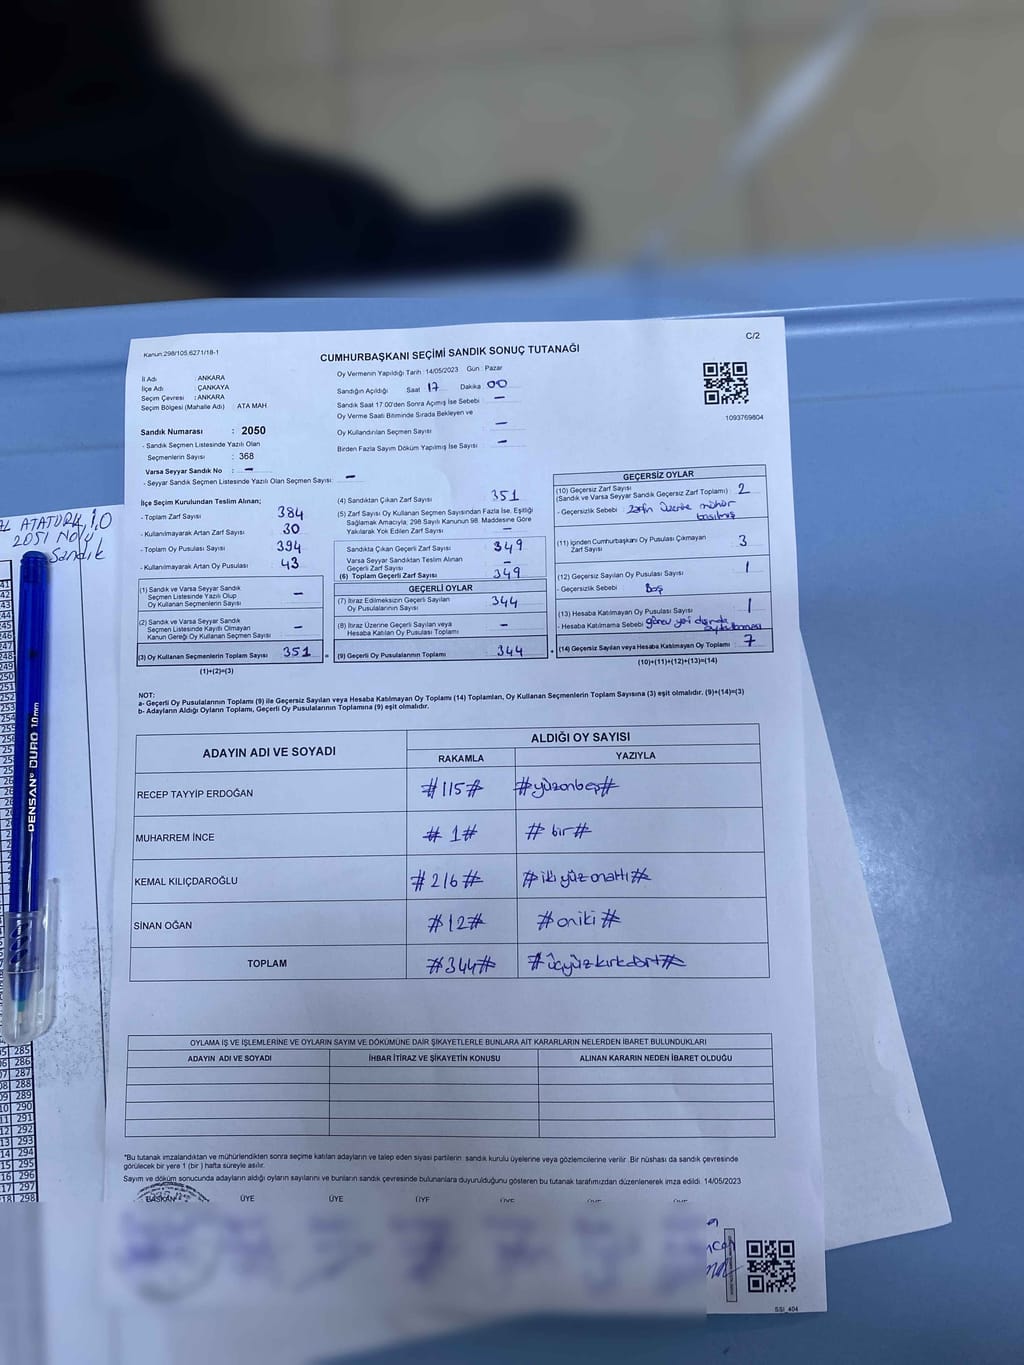 C/2
Kanun:298/105.6271/18-1
CUMHURBAŞKANI SEÇİMİ SANDIK SONUÇ TUTANAĞI
İl Adı : ANKARA
İlçe Adı : ÇANKAYA
Seçim Çevresi : ANKARA
Seçim Bölgesi (Mahalle Adı) : ATA MAH.
Sandık Numarası : 2050
- Sandık Seçmen Listesinde Yazılı Olan
Seçmenlerin Sayısı : 368
Varsa Seyyar Sandık No : –
- Seyyar Sandık Seçmen Listesinde Yazılı Olan Seçmen Sayısı : –
Oy Vermenin Yapıldığı Tarih : 14/05/2023 Gün : Pazar
Sandığın Açıldığı Saat 17 Dakika 00
Sandık Saat 17.00'den Sonra Açımış İse Sebebi : –
Oy Verme Saati Bitiminde Sırada Bekleyen ve
Oy Kullandırılan Seçmen Sayısı : –
Birden Fazla Sayım Döküm Yapılmış İse Sayısı : –
1093769804
İlçe Seçim Kurulundan Teslim Alınan;
- Toplam Zarf Sayısı 384
- Kullanılmayarak Artan Zarf Sayısı 30
- Toplam Oy Pusulası Sayısı 394
- Kullanılmayarak Artan Oy Pusulası 43
(1) Sandık ve Varsa Seyyar Sandık
Seçmen Listesinde Yazılı Olup
Oy Kullanan Seçmenlerin Sayısı –
(2) Sandık ve Varsa Seyyar Sandık
Seçmen Listesinde Kayıtlı Olmayan
Kanun Gereği Oy Kullanan Seçmen Sayısı –
(3) Oy Kullanan Seçmenlerin Toplam Sayısı 351
(1)+(2)=(3)
(4) Sandıktan Çıkan Zarf Sayısı 351
(5) Zarf Sayısı Oy Kullanan Seçmen Sayısından Fazla İse, Eşitliği
Sağlamak Amacıyla; 298 Sayılı Kanunun 98. Maddesine Göre
Yakılarak Yok Edilen Zarf Sayısı –
Sandıkta Çıkan Geçerli Zarf Sayısı 349
Varsa Seyyar Sandıktan Teslim Alınan
Geçerli Zarf Sayısı –
(6) Toplam Geçerli Zarf Sayısı 349
GEÇERLİ OYLAR
(7) İtiraz Edilmeksizin Geçerli Sayılan
Oy Pusulalarının Sayısı 344
(8) İtiraz Üzerine Geçerli Sayılan veya
Hesaba Katılan Oy Pusulası Toplamı –
= (9) Geçerli Oy Pusulalarının Toplamı 344
GEÇERSİZ OYLAR
(10) Geçersiz Zarf Sayısı
(Sandık ve Varsa Seyyar Sandık Geçersiz Zarf Toplamı) 2
- Geçersizlik Sebebi : zarfın üzerine mühür
basılmış
(11) İçinden Cumhurbaşkanı Oy Pusulası Çıkmayan
Zarf Sayısı 3
(12) Geçersiz Sayılan Oy Pusulası Sayısı 1
- Geçersizlik Sebebi : Boş
(13) Hesaba Katılmayan Oy Pusulası Sayısı 1
- Hesaba Katılmama Sebebi görev yeri dışında
+ (14) Geçersiz Sayılan veya Hesaba Katılmayan Oy Toplamı 7
(10)+(11)+(12)+(13)=(14)
NOT:
a- Geçerli Oy Pusulasının Toplamı (9) ile Geçersiz Sayılan veya Hesaba Katılmayan Oy Toplamı (14) Toplamları, Oy Kullanan Seçmenlerin Toplam Sayısına (3) eşit olmalıdır. (9)+(14)=(3)
b- Adayların Aldığı Oyların Toplamı, Geçerli Oy Pusulalarının Toplamına (9) eşit olmalıdır.
ADAYIN ADI VE SOYADI ALDIĞI OY SAYISI
RAKAMLA YAZIYLA
RECEP TAYYİP ERDOĞAN #115# #yüzonbeş#
MUHARREM İNCE #1# #bir#
KEMAL KILIÇDAROĞLU #216# #ikiyüzonaltı#
SİNAN OĞAN #12# #oniki#
TOPLAM #344# #üçyüzkırkdört#
OYLAMA İŞ VE İŞLEMLERİNE VE OYLARIN SAYIM VE DÖKÜMÜNE DAİR ŞİKAYETLERLE BUNLARA AİT KARARLARIN NELERDEN İBARET BULUNDUKLARI
ADAYIN ADI VE SOYADI İHBAR İTİRAZ VE ŞİKAYETİN KONUSU ALINAN KARARIN NEDEN İBARET OLDUĞU
*Bu tutanak imzalandıktan ve mühürlendikten sonra seçime katılan adayların ve talep eden siyasi partilerin sandık kurulu üyelerine veya gözlemcilerine verilir. Bir nüshası da sandık çevresinde
görülecek bir yere 1 (bir ) hafta süreyle asılır.
Sayım ve döküm sonucunda adayların aldığı oyların sayılarını ve bunların sandık çevresinde bulunanlara duyurulduğunu gösteren bu tutanak tarafımızdan düzenlenerek imza edildi. 14/05/2023
BAŞKAN ÜYE ÜYE ÜYE ÜYE
SSI_404
ATATÜRK İ.O
2051 Nolu
Sandık
PENSAN DURO 1.0mm
285
286
287
288
289
290
291
292
293
294
295
296
297
298